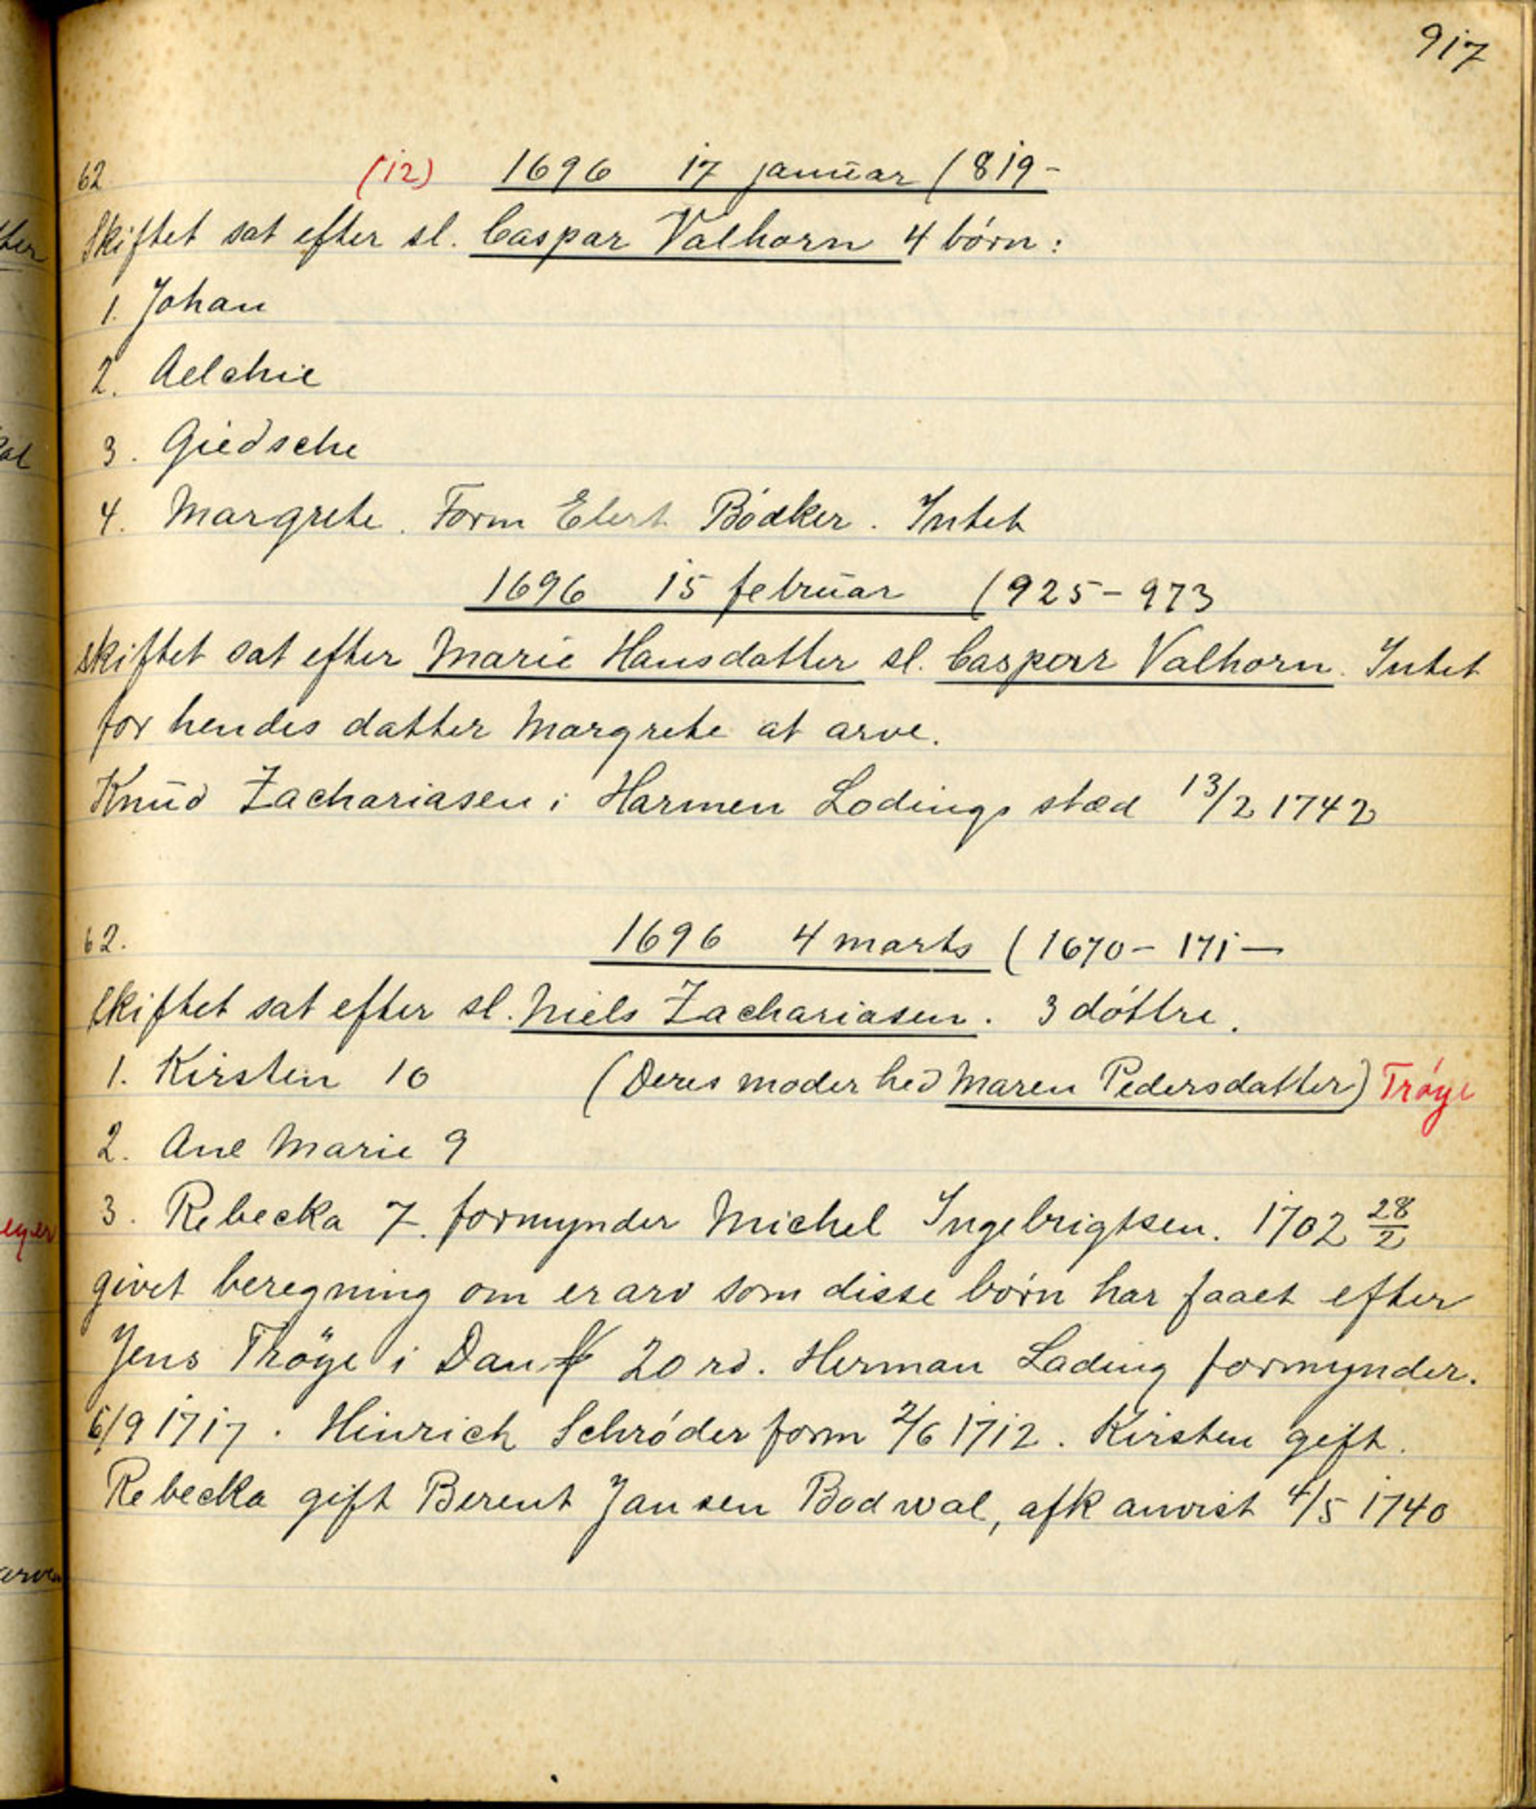 917
62 (12) 1696 17 januar (819-
Skiftet sat efter sl. Caspar Valhorn 4 børn:
1. Johan
2. Aelchie
3. Giedsche
4. Margrete. Form Elert Bødker. Intet
1696 15 februar (925-973
skiftet sat efter Marie Hansdatter sl. Casparr Valhorn. Intet
for hendes datter Margrete at arve.
Knud Zachariasen i Harmen Lodings stæd 13/2 1742
62. 1696 4 marts (1670-171-
skiftet sat efter sl. Niels Zachariasen. 3 døttre.
1. Kirsten 10 (Deres moder hed Maren Pedersdatter) Trøye
2. Ane Marie 9
3. Rebecka 7. formynder Michel Ingebrigtsen. 1702 28/2
givet beregning om en arv som disse børn har faaet efter
Jens Trøye i Dan 20 rd. Herman Lading formynder.
6/9 1717. Hinrich Schrøder form 2/6 1712. Kirsten gift.
Rebecka gift Berent Jansen Bodwal, afk anvist 4/5 1740